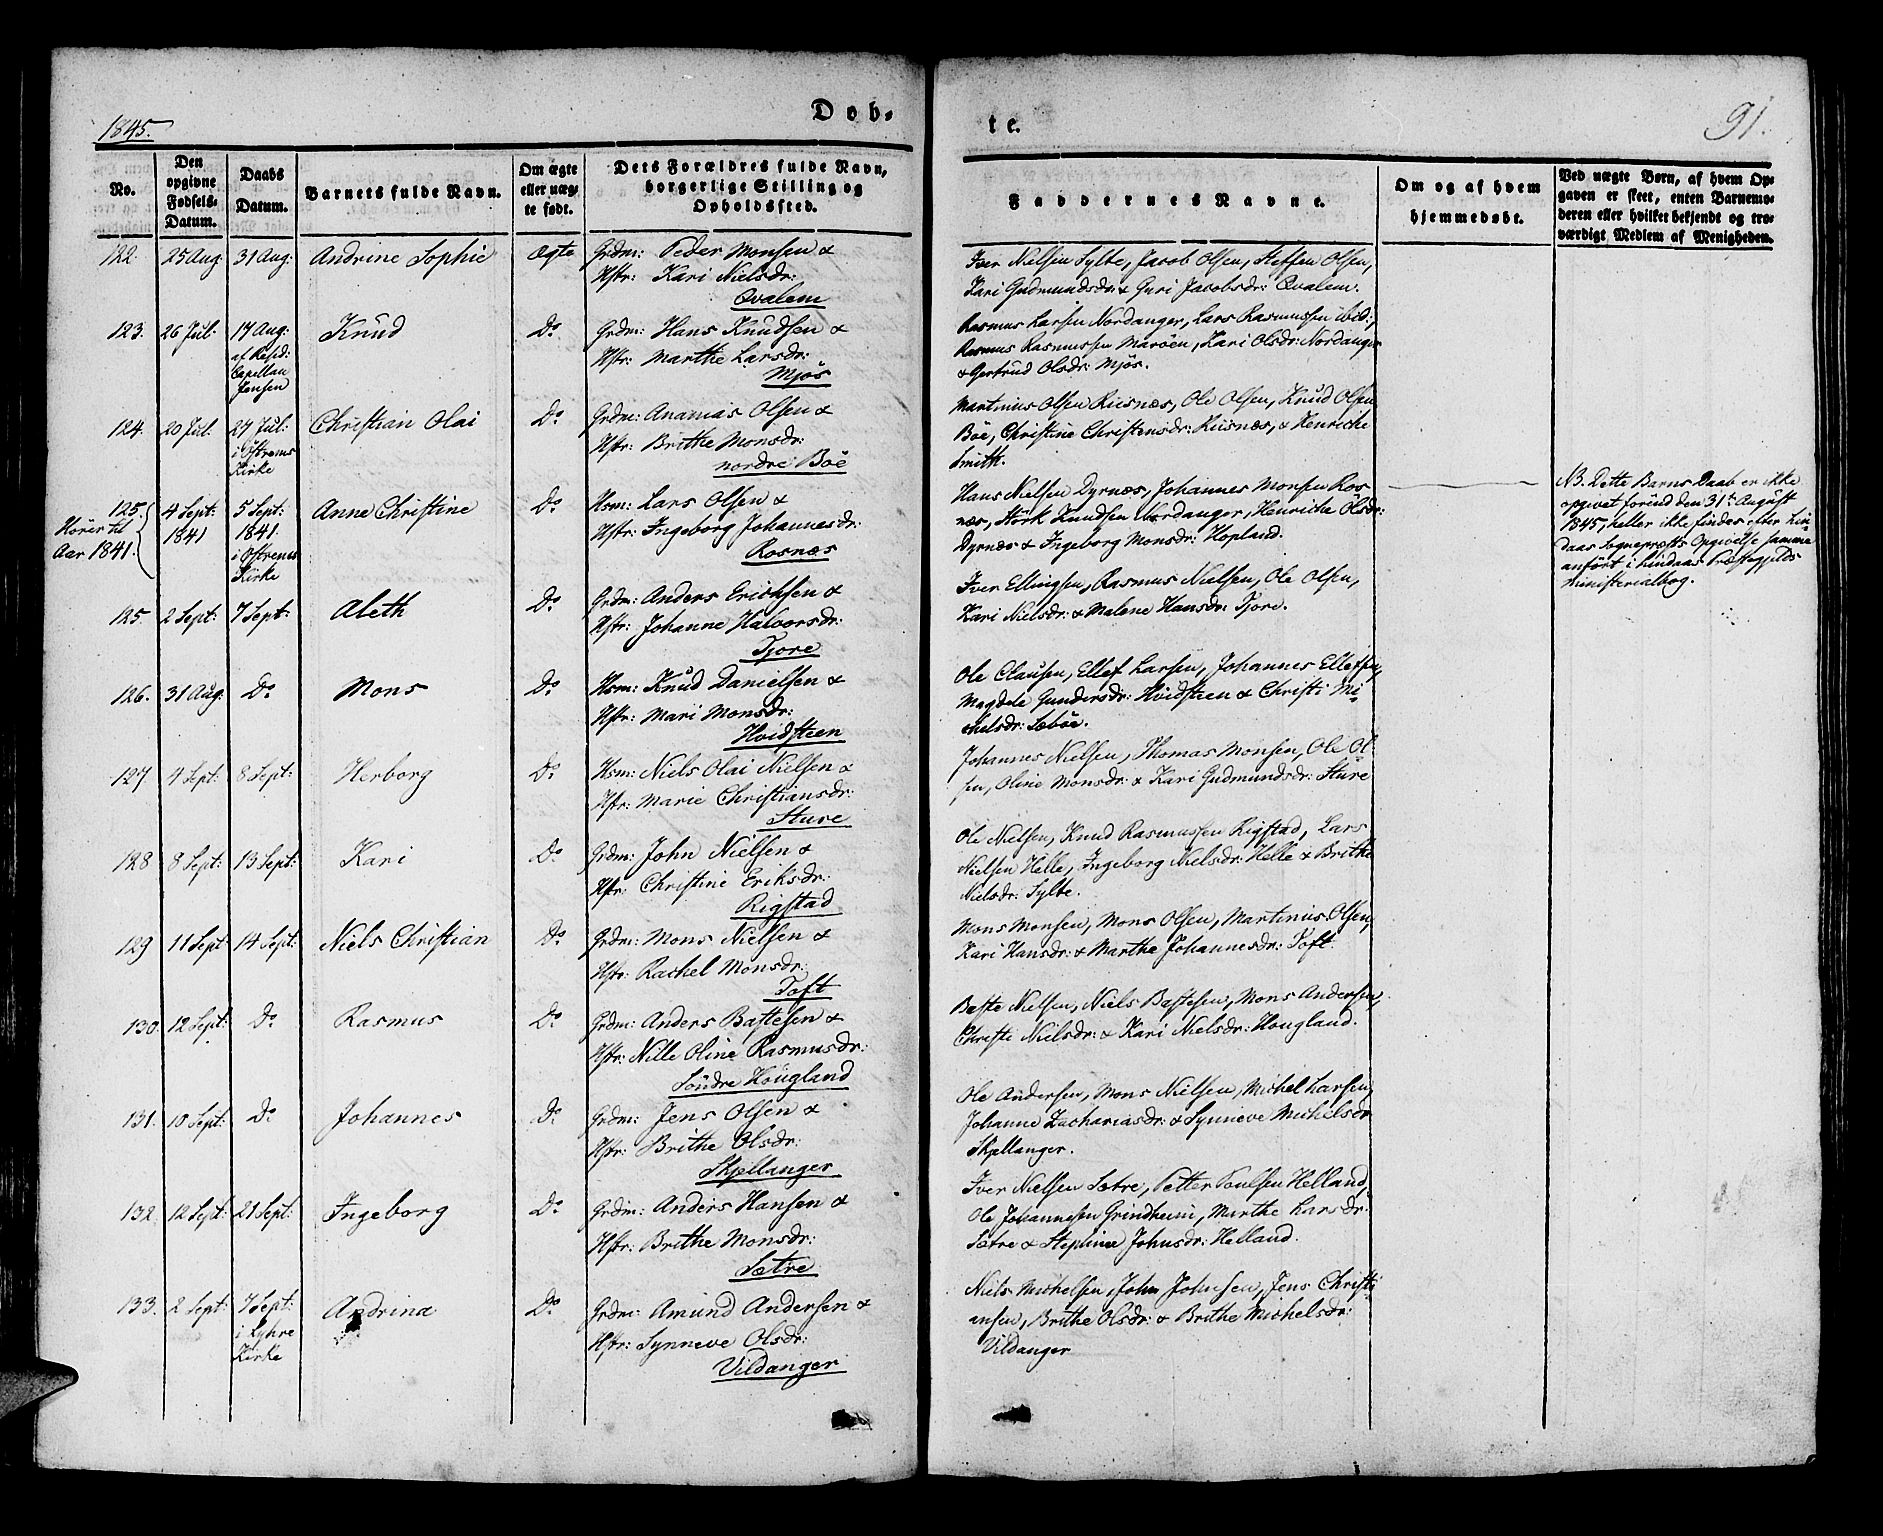 1845.
Døb-
te.
91.
No.
Den opgivne Fødsels-Datum.
Daabs Datum.
Barnets fulde Navn.
Om ægte eller uæg-te født.
Dets Forældres fulde Navn, borgerlige Stilling og Opholdssted.
Faddernes Navne.
Om og af hvem hjemmedøbt.
Ved uægte Børn, af hvem Op-gaven er skeet, enten Barnemo-deren eller hvilket bekjendt og tro-værdigt Medlem af Menigheden.
122. 25 Aug 31 Aug: Andrine Sophie Ægte Grdm: Peder Monsen &
Hstr: Kari Nielsdr:
Qvalem
Iver Nielsen Sylte, Jacob Olsen, Steffen Olsen,
Kari Gudmundsdr: & Guri Jacobsdr: Qvalem.
123. 26 Jul: 17 Aug: Knud Do Grdm: Hans Knudsen &
af Resid:
Capellan
Jensen
Hstr: Marthe Larsdr:
Mjös
Rasmus Larsen Nordanger, Lars Rasmussen ibid:,
Rasmus Rasmussen Maröen, Kari Olsdr: Nordanger
& Gertrud Olsdr: Mjös.
124. 20 Jul: 27 Jul: Christian Olai Do Grdm: Ananias Olsen &
i Ostrems
Kirke
Hstr: Brithe Monsdr:
nordre Böe
Martinus Olsen Risnæs, Ole Olsen, Knud Olsen
Böe, Christine Christensdr: Risnæs, & Henriche
Smith.
125. 4 Sept: 5 Sept: Anne Christine Do Hsm: Lars Olsen &
Hörer til
Aar 1841.
1841
1841.
i Ostrems
Kirke
Hstr: Ingeborg Johannesdr:
Rosnæs
Hans Nielsen Dyrnæs, Johannes Monsen Ros-
næs, Störk Knudsen Nordanger, Henriche Olsdr:
Dyrnæs & Ingeborg Monsdr: Hopland.
NB. Dette Barns Daab er ikke
opgivet förend den 31te August
1845, heller ikke findes efter Lin-
daas Sognepræsts Opgivelse samme
anfört i Lindaas Præstegjelds
Ministerialbog.
125. 2 Sept: 7 Sept: Aleth Do Grdm: Anders Erichsen &
Hstr: Johanne Halvorsdr:
Tjore
Iver Ellingsen, Rasmus Nielsen, Ole Olsen,
Kari Nielsdr: & Malene Hansdr: Tjore.
126. 31 Aug: Do Mons Do Hsm: Knud Danielsen &
Hstr: Mari Monsdr:
Hvidsteen
Ole Clausen, Ellef Larsen, Johannes Ellefsen,
Magdele Gundersdr: Hvidsteen & Christi Mi-
chelsdr: Sæböe.
127 4 Sept: 8 Sept: Herborg Do Hsm: Niels Olai Nielsen &
Hstr: Marie Christiansdr:
Sture
Johannes Nielsen, Thomas Monsen, Ole Ol-
sen, Oline Monsdr: & Kari Gudmundsdr: Sture
128 8 Sept: 13 Sept: Kari Do Grdm: John Nielsen &
Hstr: Christine Eriksdr:
Rigstad
Ole Nielsen, Knud Rasmussen Rigstad, Lars
Nielsen Helle, Ingeborg Nielsdr: Helle & Brithe
Nielsdr: Sylte.
129 11 Sept 14 Sept: Niels Christian Do Grdm: Mons Nielsen &
Hstr: Rachel Monsdr:
Toft
Mons Monsen, Mons Olsen, Martinus Olsen,
Kari Hansdr: & Marthe Johannesdr: Toft.
130. 12 Sept: Do Rasmus Do Grdm: Anders Bastesen &
Hstr: Nille Oline Rasmusdr:
Söndre Hougland
Baste Nielsen, Niels Bastesen, Mons Andersen,
Christi Nielsdr: & Kari Nielsdr: Hougland.
131. 10 Sept: Do Johannes Do Grdm: Jens Olsen &
Hstr: Brithe Olsdr:
Skjellanger
Ole Andersen, Mons Nielsen, Michel Larsen,
Johanne Zachariasdr: & Synneve Michelsdr.
Skjellanger.
132. 12 Sept: 21 Sept: Ingeborg Do Grdm: Anders Hansen &
Hstr: Brithe Monsdr:
Sætre
Iver Nielsen Sætre, Petter Poulsen Helland,
Ole Johannesen Grindheim, Marthe Larsdr:
Sætre & Stephine Johnsdr: Helland.
133. 2 Sept: 7 Sept: Andrina Do Grdm: Amund Andersen &
i Lyhre
Kirke
Hstr: Synneve Olsdr:
Vildanger
Niels Michelsen, John Johnsen, Jens Christi-
ansen, Brithe Olsdr: & Brithe Michelsdr:
Vildanger